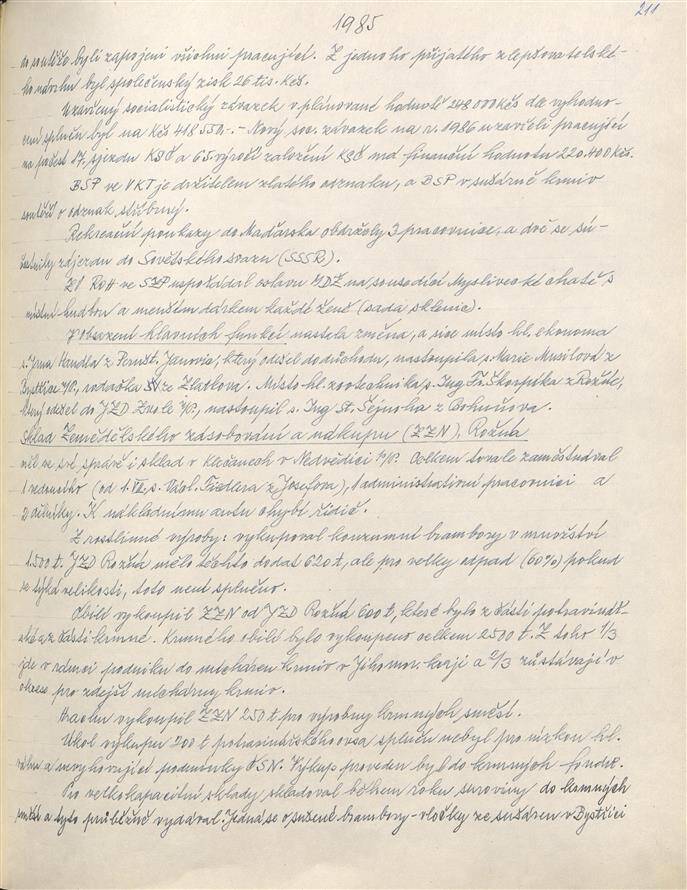 211
1985
do soutěže byli zapojeni všichni pracující. Z jednoho přijatého zlepšovatelské-
ho návrhu byl společenský zisk 26 tis. Kčs.
Uzavřený socialistický závazek v plánované hodnotě 248 000 Kčs dle vyhodno-
cení splněn byl na Kčs 418.550.- Nový soc. závazek na r. 1986 uzavřeli pracující
na počest 17. sjezdu KSČ a 65. výročí založení KSČ má finanční hodnotu 220.400 Kčs.
BSP ve VKT je držitelem zlatého odznaku, a BSP v sušárně krmiv
soutěží o odznak stříbrný.
Rekreační poukazy do Maďarska obdržely 3 pracovnice, a dvě se zú-
častnily zájezdu do Sovětského svazu (SSSR).
ZV ROH ve SZP uspořádal oslavu MDŽ na sousedící Myslivecké chatě s
místní hudbou a menším dárkem každé ženě (sada sklenic).
V obsazení hlavních funkcí nastala změna, a sice místo hl. ekonoma
s. Jana Handla z Pernšt. Janovic, který odešel do důchodu, nastoupila s. Marie Musilová z
Bystřice n/P., rodačka ze Zlatkova. Místo hl. zootechnika s. Ing Fr. Škorpíka z Rožné,
který odešel do JZD Zvole n/P., nastoupil s. Ing. St. Šejnoha z Bohuňova.
Sklad Zemědělského zásobování a nákupu (ZZN), Rožná
měl ve své správě i sklad v Klečanech v Nedvědici n/P. Celkem tovale zaměstnával
1 vedoucího (od 1.VI. s. Václ. Fiedlera z Josefova), 1 administrativní pracovnici a
2 dělníky. K nákladnímu autu chybí řidič.
Z rostlinné výroby: vykupoval konzumní brambory v množství
1.500 t. JZD Rožná mělo těchto dodat 620 t, ale pro velký odpad (60%) pokud
se týká velikosti, toto není splněno.
Obilí vykoupil ZZN od JZD Rožná 600 t, které bylo z části potravinář-
ské a z části krmné. Krmného obilí bylo vykoupeno celkem 2500 t. Z toho 1/3
jde v rámci podniku do mícháren krmiv v Jihomor. kraji a 2/3 zůstávají v
okrese pro zdejší míchárny krmiv.
Hrachu vykoupil ZZN 250 t pro výrobny krmných směsí.
Úkol výkupu 200 t potravinářského ovsa splněn nebyl pro nízkou hl.
váhu a nevyhovující podmínky ČSN. Výkup proveden byl do krmných fondů.
Pro velkokapacitní sklady skladoval během roku suroviny do krmných
směsí a tyto průběžně vydával. Jedná se o sušené brambory - vločky ze sušáren v Bystřici